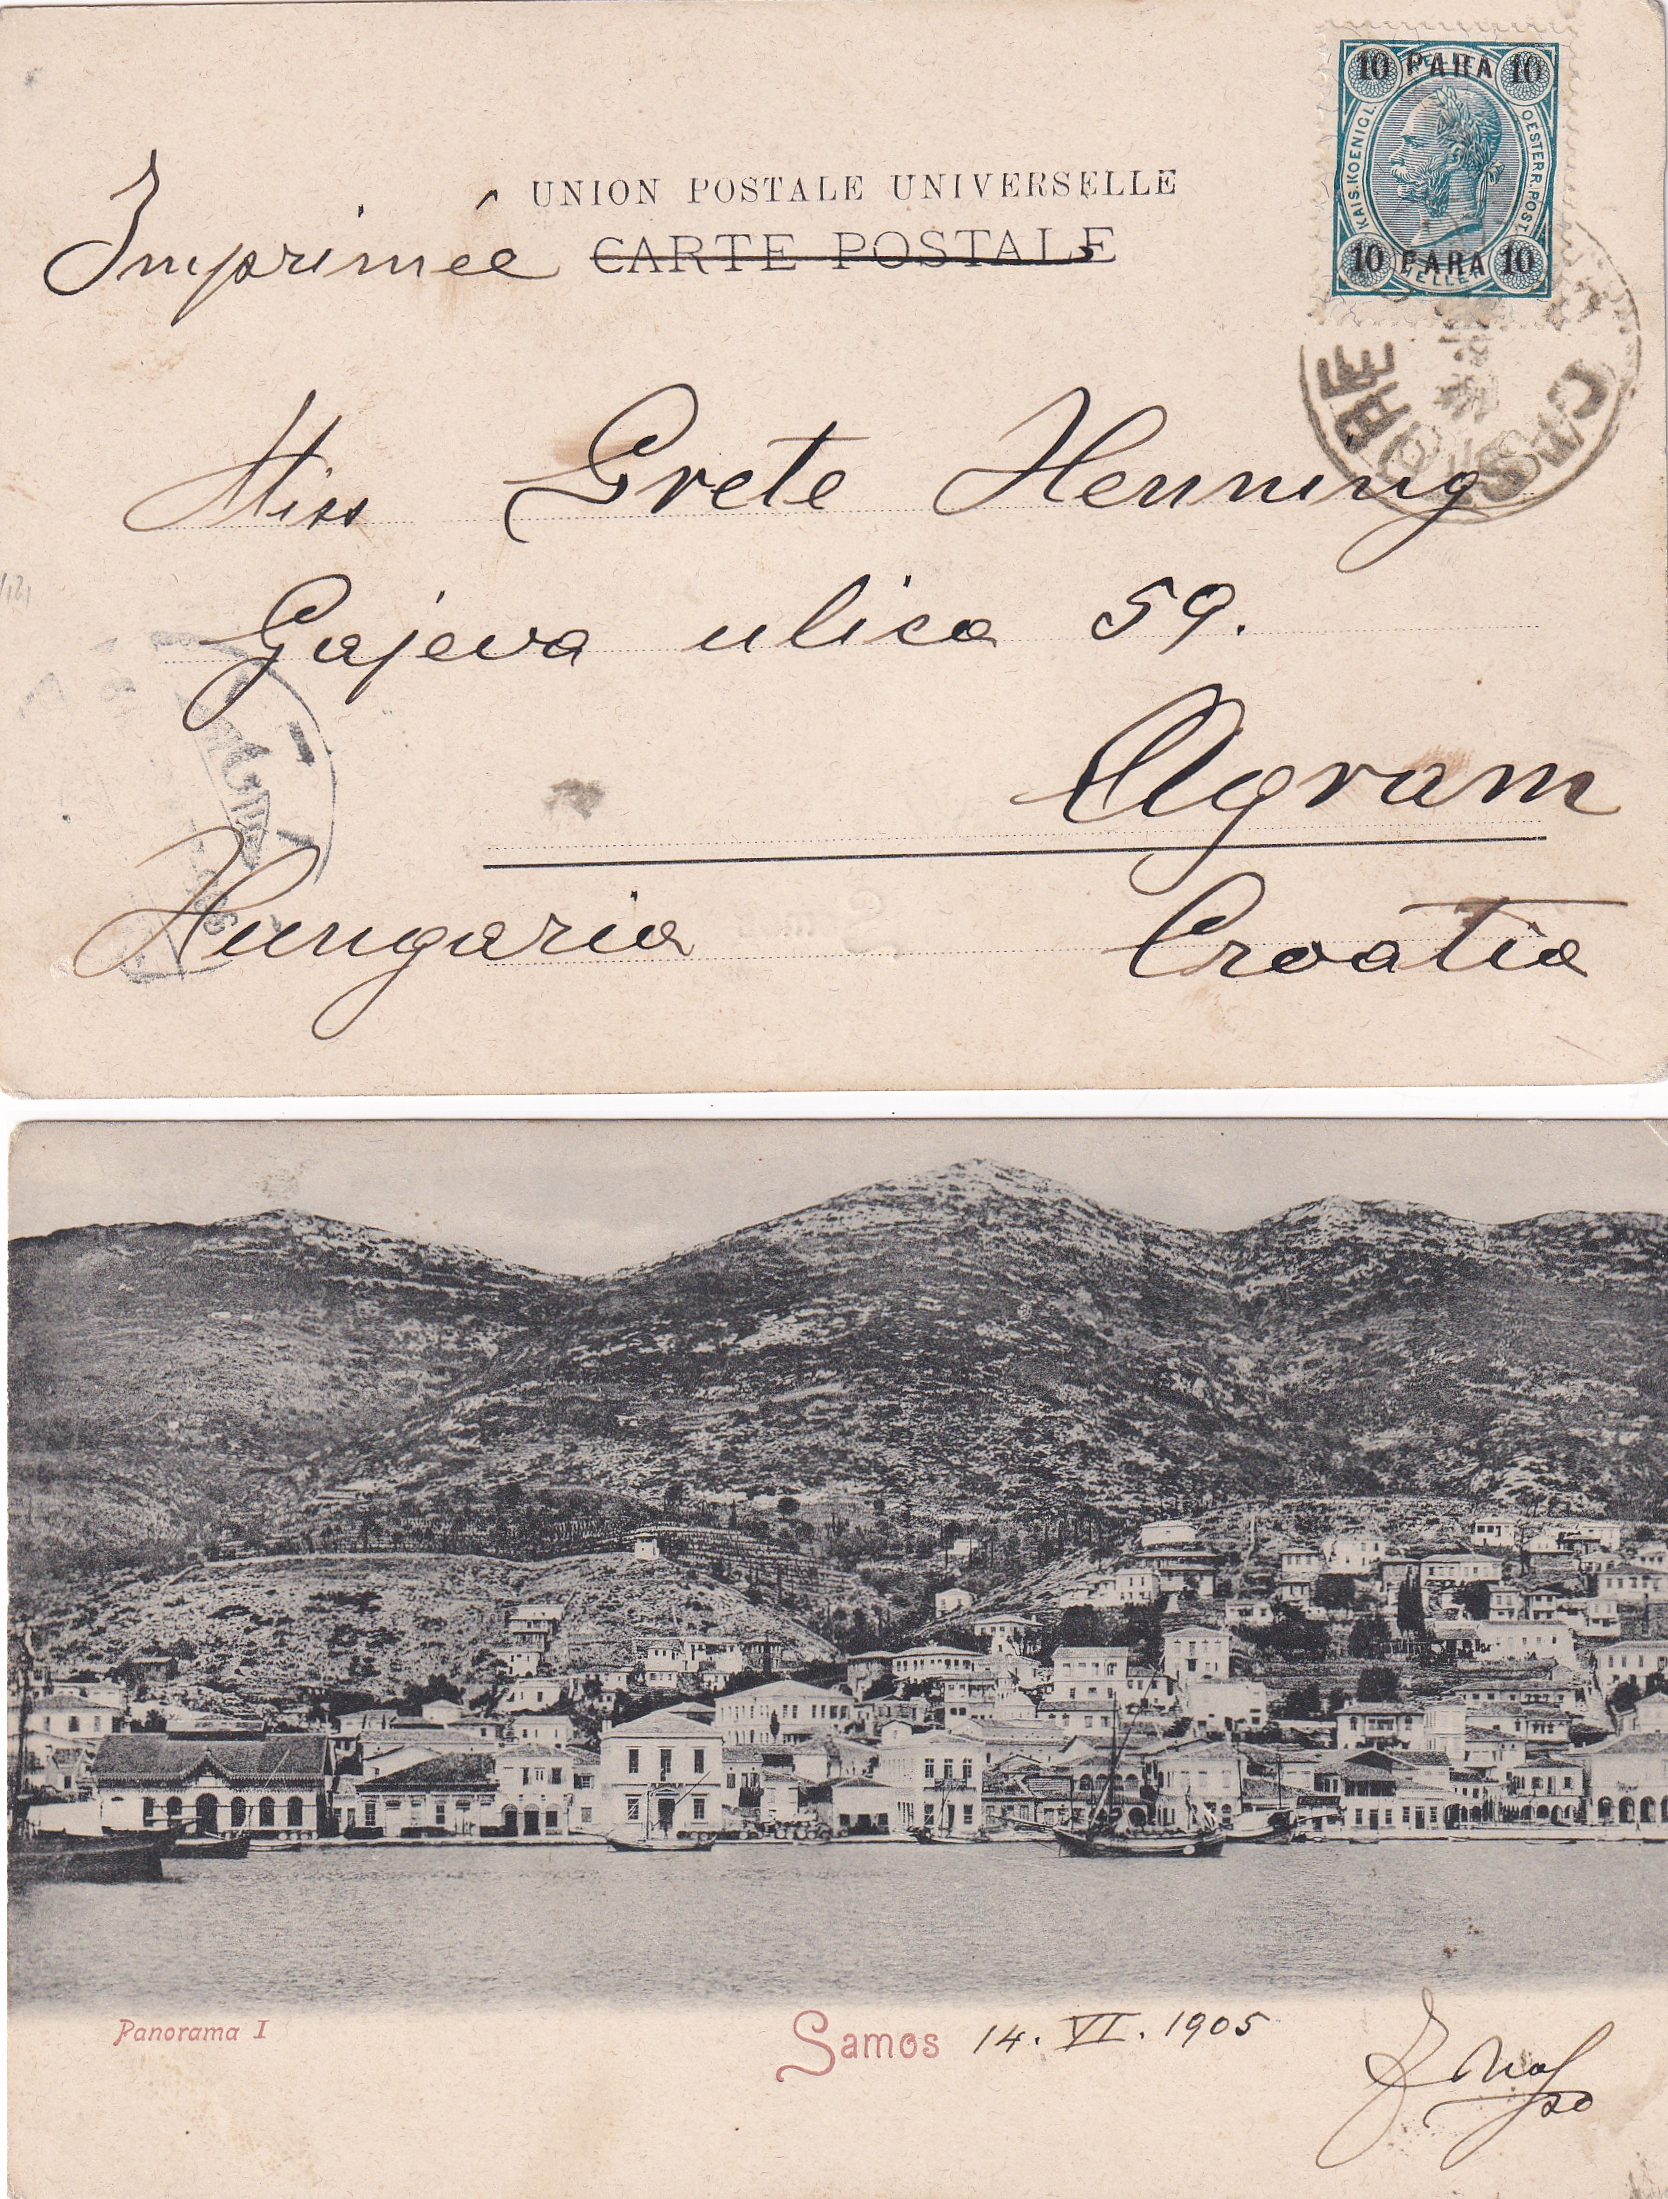 10 PARA 10
KAIS. KOENIGL. OESTERR. POST
10 PARA 10
HELLER
UNION POSTALE UNIVERSELLE
Imprimée CARTE POSTALE
Miss Grete Henning
Gajeva ulica 59.
Agram
Hungaria Croatia
Panorama I
Samos 14. VI. 1905